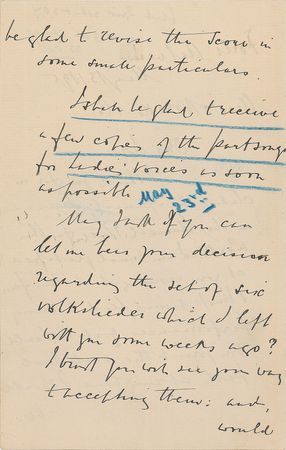 be glad to revise the Score in
some small particulars.
I shall be glad to receive
a few copies of the partsongs
for Ladies' Voices as soon
as possible
May 23rd
May I ask if you can
let me hear your decision
regarding the set of six
volkslieder which I left
with you some weeks ago?
I trust you will see your way
to accepting them: and,
would